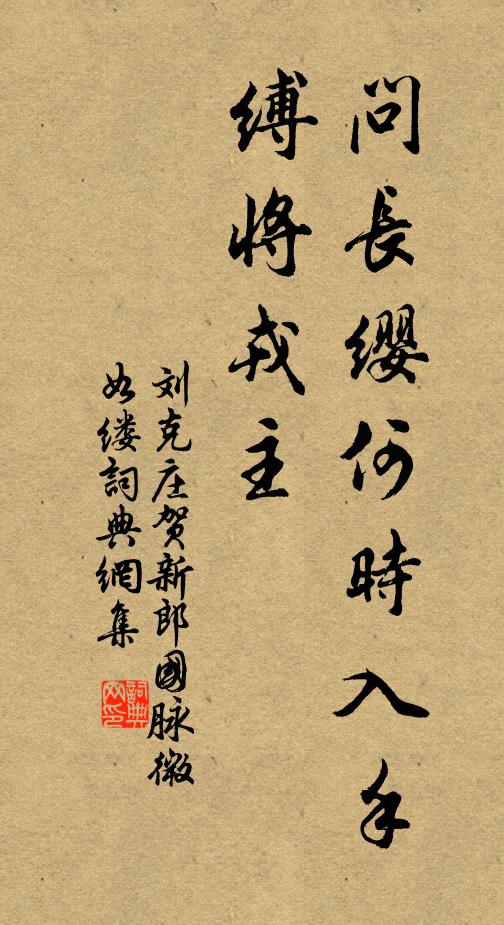 問長缨何時入手
縛將戎主
刘克庄贺新郎國脉微
如缕詞典網集
詞典
网印